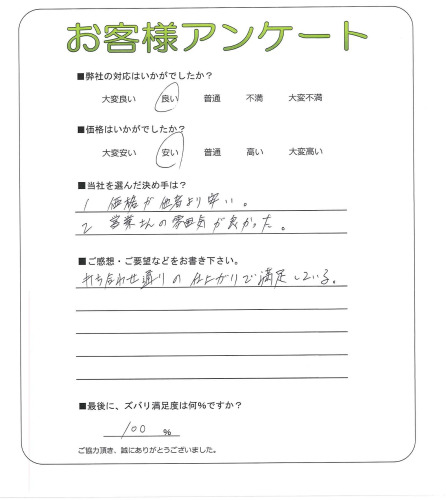 お客様アンケート
■弊社の対応はいかがでしたか?
大変良い 良い 普通 不満 大変不満
■価格はいかがでしたか?
大変安い 安い 普通 高い 大変高い
■当社を選んだ決め手は?
1 価格が他者より安い。
2 営業さんの雰囲気が良かった。
■ご感想・ご要望などをお書き下さい。
打ち合わせ通りの仕上がりで満足している。
■最後に、ズバリ満足度は何%ですか?
100 %
ご協力頂き、誠にありがとうございました。